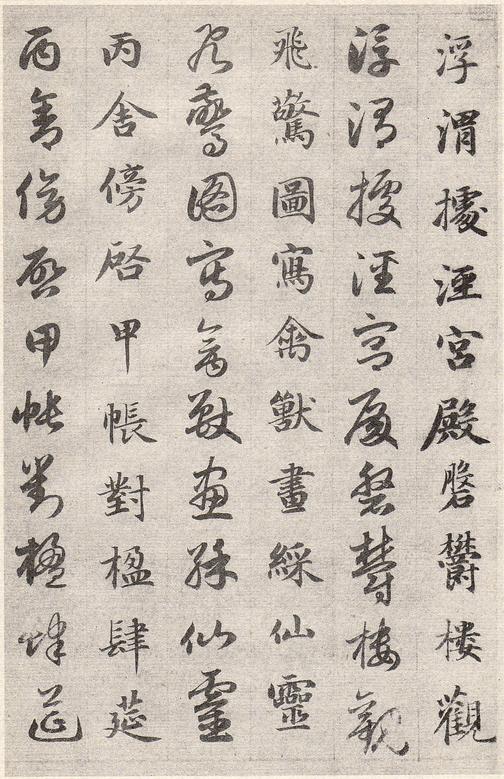 浮渭據涇宮殿磐鬱楼觀
浮渭據涇宮殿磐鬱楼觀
飛驚圖寫禽獸畫綵仙靈
飛驚圖寫禽獸畫綵仙靈
丙舍傍啓甲帳對楹肆筵
丙舍傍啓甲帳對楹肆筵